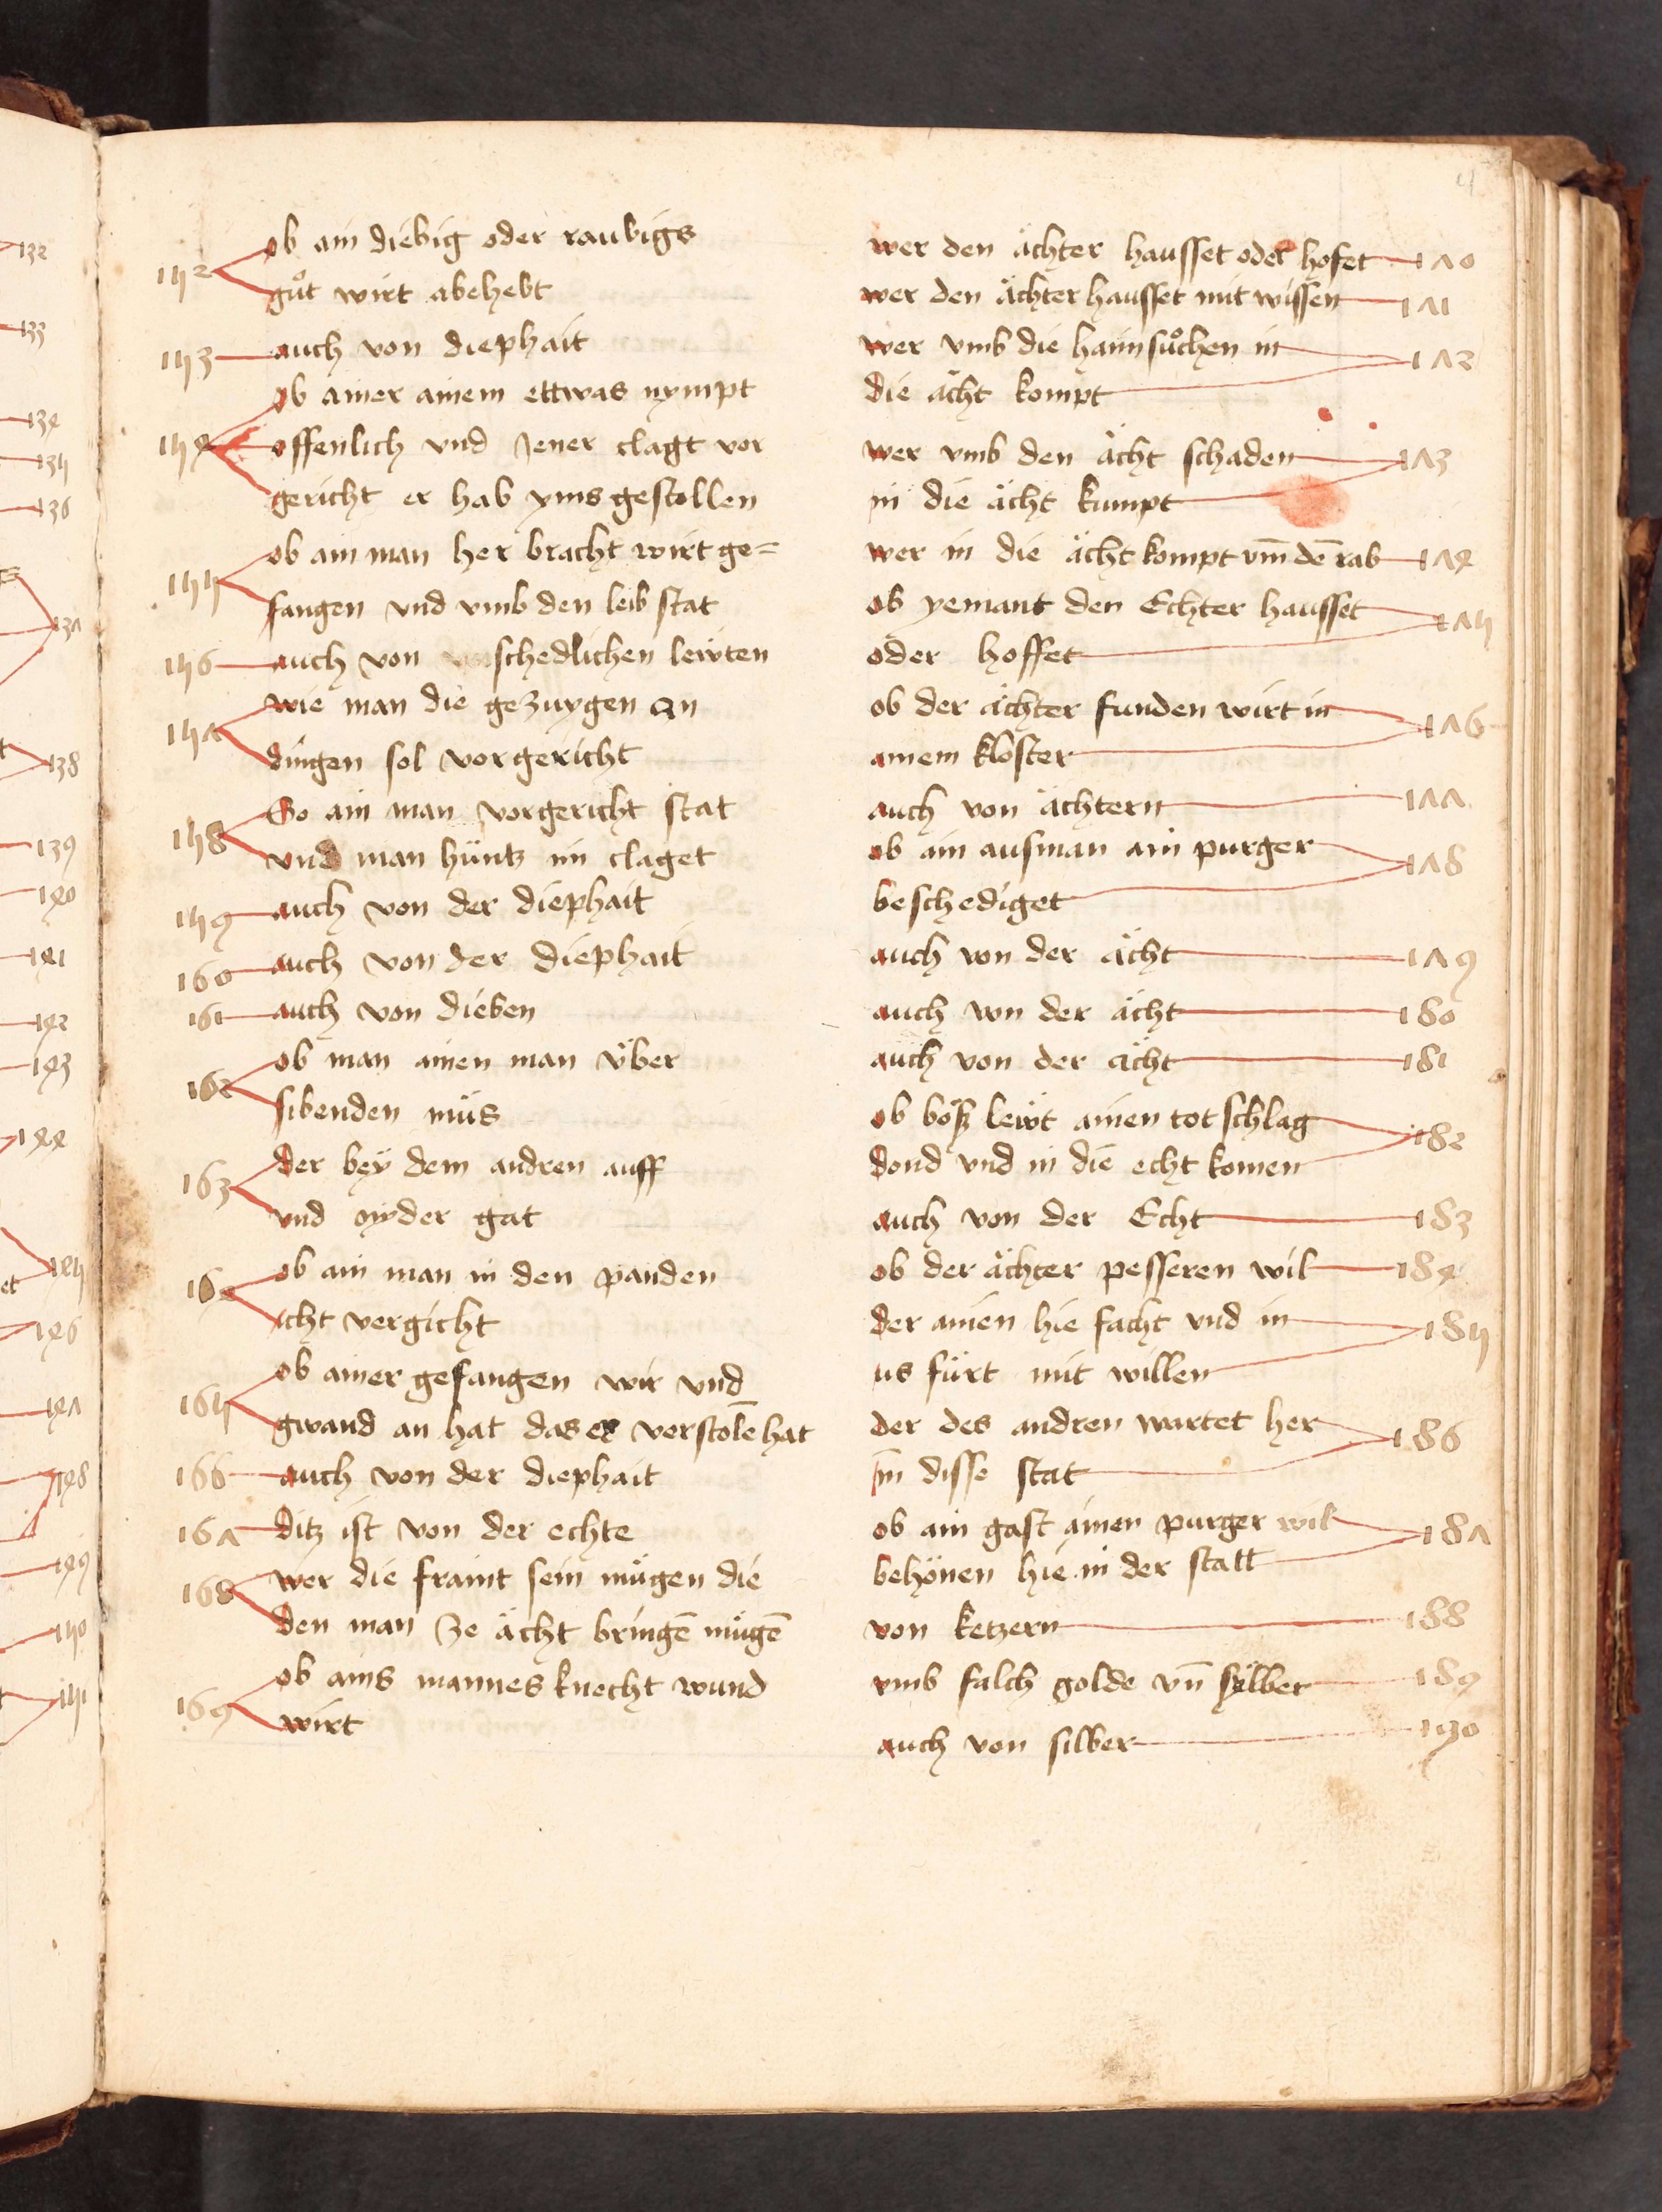 4
152 ob ain diebig oder raubigs
guͦt wirt abehebt
153 auch von diephait
ob ainer ainem ettwas nympt
154 offenlich vnd Jener clagt vor
gericht er hab yms gestollen
155 ob ain man her bracht wirt ge=
fangen vnd vmb den leib stat
156 auch von vnschedlichen lewten
157 wie man die gezuygen an
dingen sol vor gericht
158 So ain man vor gericht stat
vnd man hüntz im claget
159 auch von der diephait
160 auch von der diephait
161 auch von dieben
162 ob man ainen man v̈ber
sibenden müs
163 der bey dem andren auff
vnd nyder gat
164 ob ain man in den panden
icht vergicht
165 ob ainer gefangen wir vnd
gwand an hat das er verstolē hat
166 auch von der diephait
167 ditz ist von der echte
168 wer die fraint sein mügen die
den man ze ächt bringē mügē
169 ob ains mannes knecht wund
wirt
wer den ächter hausset oder hofet 170
wer den ächter hausset mit wissen 171
wer vmb die haimsuͦchen in 172
die ächt kompt
wer vmb den ächt schaden 173
in die ächt kumpt
wer in die ächt kompt vm̄ dē rab 174
ob yemant den Echter hausset 175
oder hoffet
ob der ächter funden wirt in 176
ainem kloster
auch von ächtern 177
ob ain ausman ain purger 178
beschediget
auch von der ächt 179
auch von der ächt 180
auch von der ächt 181
ob bößz lewt ainen totschlag 182
dond vnd in die echt komen
auch von der Echt 183
ob der ächter pesseren wil 184
der ainen hie facht vnd in 185
us fürt mit willen
der des andren wartet her 186
in disse stat
ob ain gast ainen purger wil 187
behönen hie in der statt
von ketzern 188
vmb falch golde vn̄ sylber 189
auch von silber 190